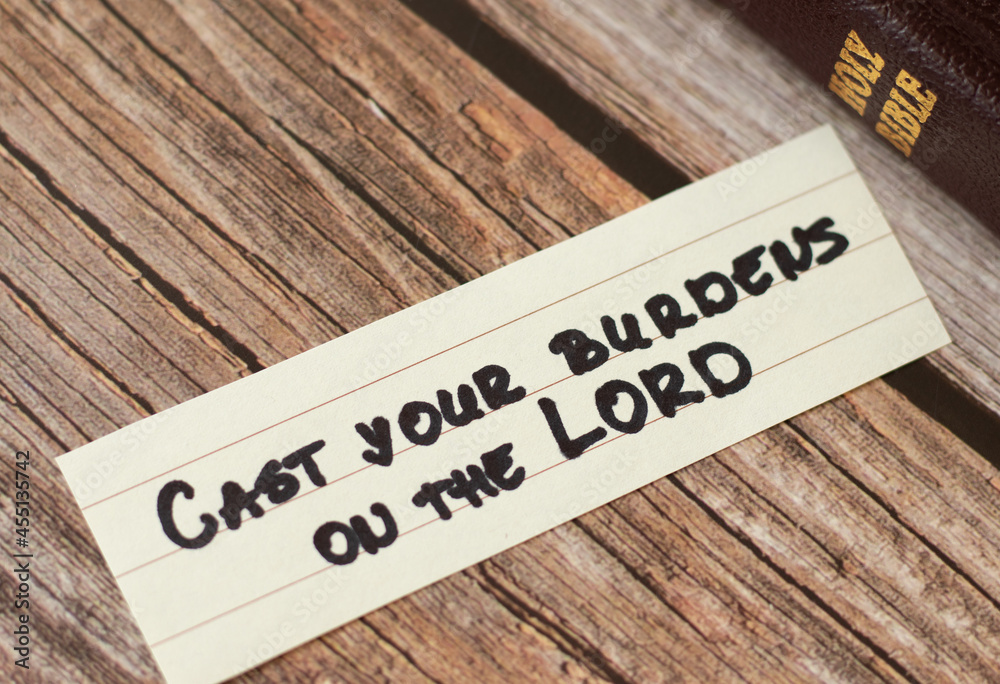 HOLY
BIBLE
CAST YOUR BURDENS
ON THE LORD
Adobe Stock | #455135742